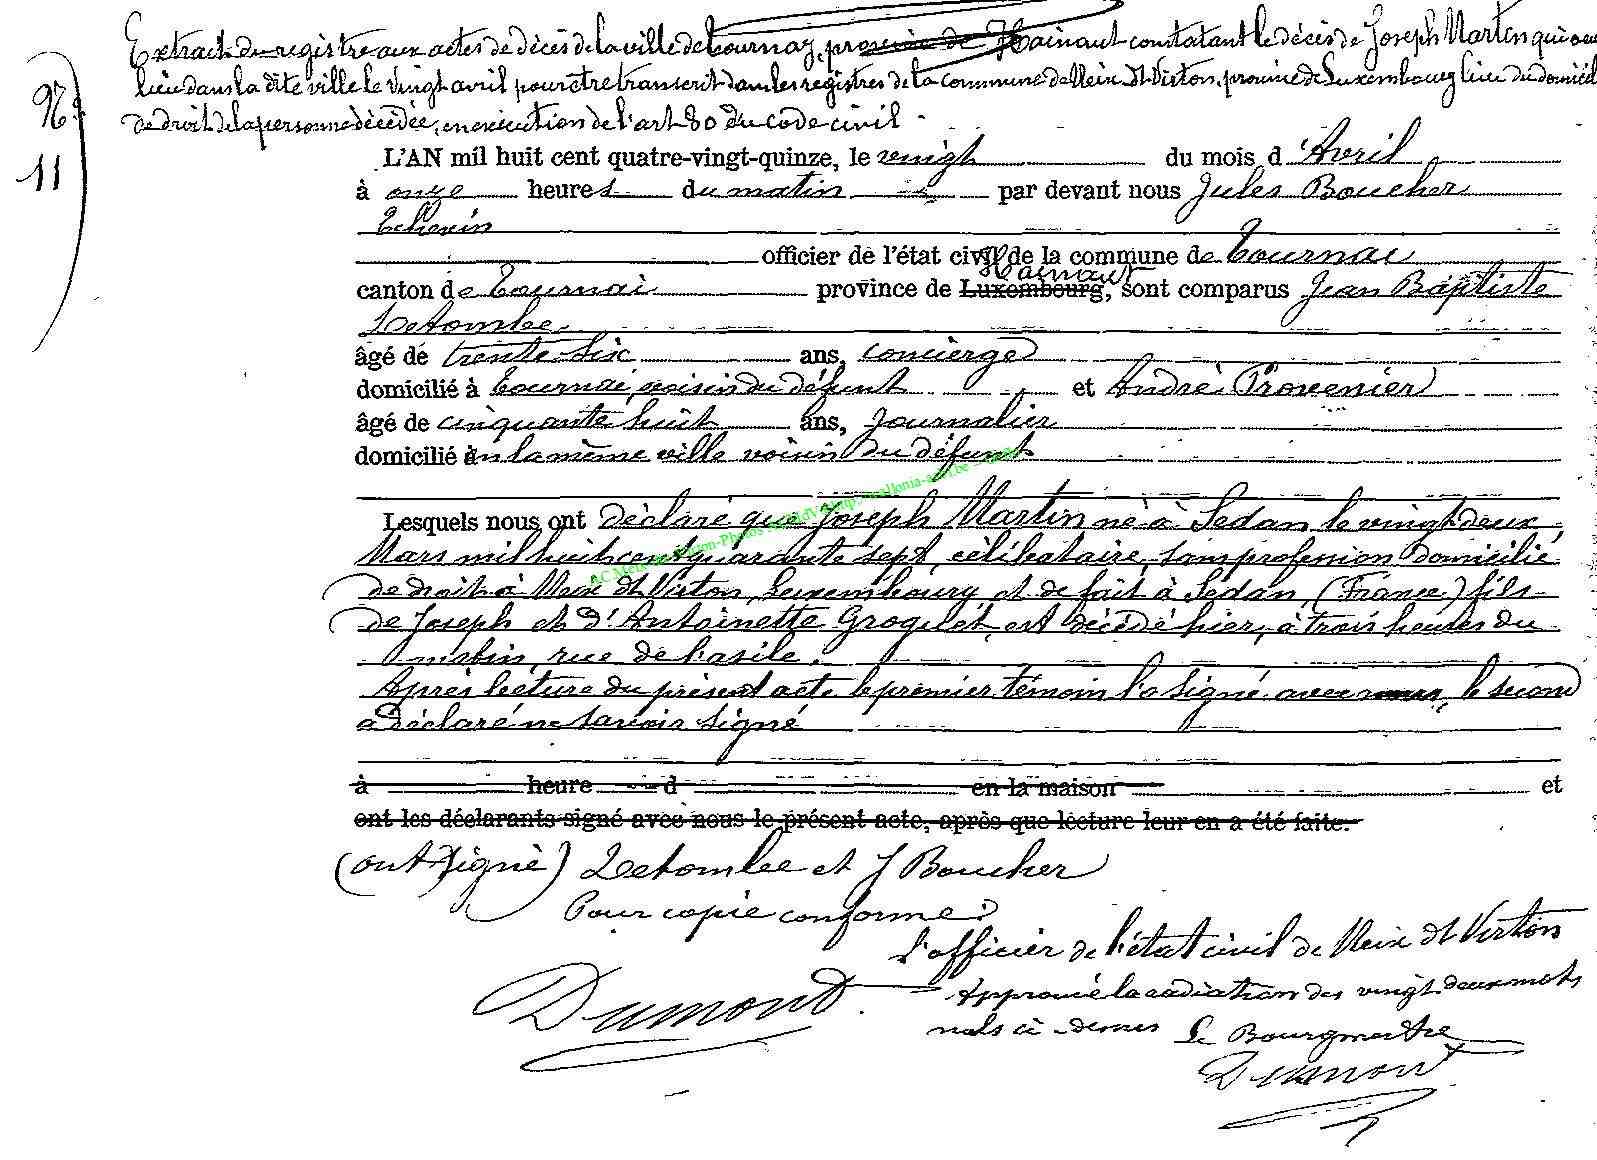 Extrait du registre aux actes de décès de la ville de Tournay, province de Hainaut constatant le décès de Joseph Martin qui a eu
lieu dans la dite ville le vingt avril pour être transcrit dans les registres de la commune de Meix dt Virton, province de Luxembourg lieu du domicile
de droit de la personne décédée, en exécution de l'art 80 du code civil.
N°
11
L'AN mil huit cent quatre-vingt-quinze, le vingt du mois d'Avril
à onze heures du matin par devant nous Jules Boucher
Echevin
officier de l'état civil de la commune de Tournai
Hainaut
canton de Tournai province de Luxembourg, sont comparus Jean Baptiste
Letombe
âgé de trente six ans, concierge
domicilié à Tournai, voisin du défunt et André Provenier
âgé de cinquante huit ans, Journalier
domicilié en la même ville voisin du défunt
Lesquels nous ont déclaré que Joseph Martin né à Sedan le vingt deux
Mars mil huit cent quarante sept, célibataire, sans profession domicilié
de droit à Meix dt Virton, Luxembourg et de fait à Sedan, (France) fils
de Joseph et d'Antoinette est décédé hier, à trois heures du
matin, rue de l'asile.
Après lecture du présent acte le premier témoin l'a signé avec nous, le second
a déclaré ne savoir signé
à heure d en la maison et
ont les déclarants signé avec nous le présent acte, après que lecture leur en a été faite.
(ont signé) Letombe et J Boucher
Pour copie conforme:
L'officier de l'état civil de Meix dt Virton
Dumont
Approuvé la radiation des vingt deux mots
nuls ci-dessus Le Bourgmestre
Dumont